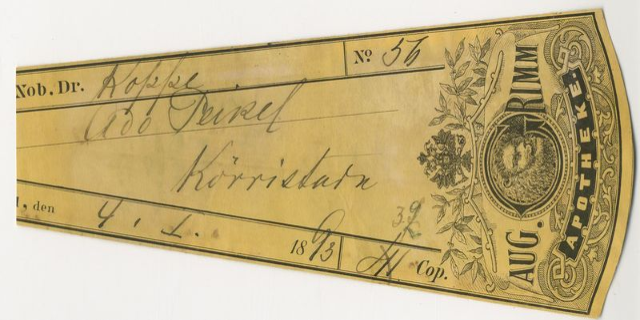 Nob. Dr. Koppe
No 56
Ado Peikel
Körristada
, den 4. 1. 1893
39
41 Cop.
AUG. GRIMM
APOTHEKE.